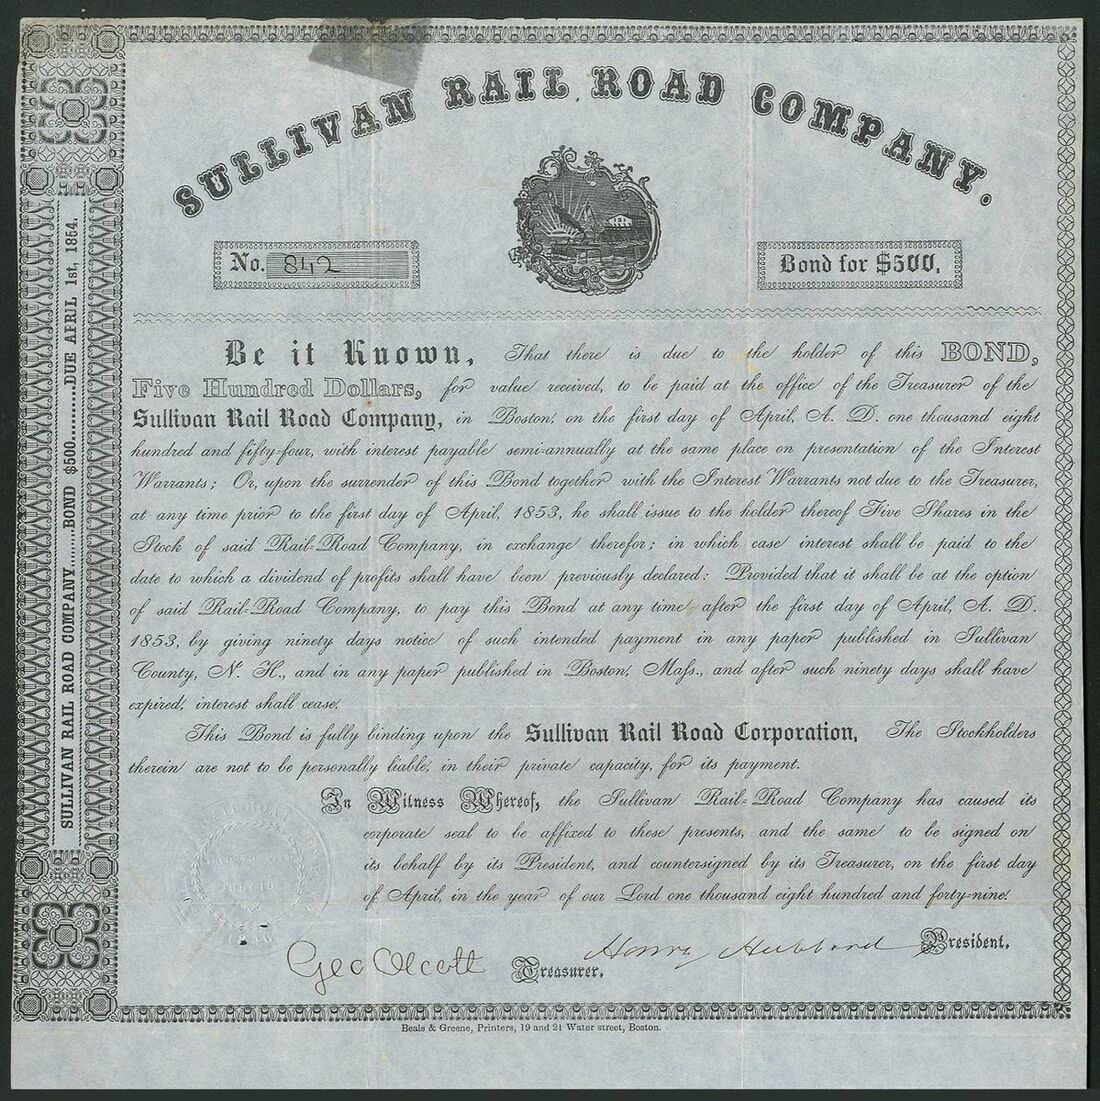 SULLIVAN RAIL ROAD COMPANY.
No. 842
Bond for $500.
SULLIVAN RAIL ROAD COMPANY....BOND $500..........DUE APRIL 1st, 1854.
Be it Known, That there is due to the holder of this BOND,
Five Hundred Dollars, for value received, to be paid at the office of the Treasurer of the
Sullivan Rail Road Company, in Boston, on the first day of April, A. D. one thousand eight
hundred and fifty-four, with interest payable semi-annually at the same place on presentation of the Interest
Warrants; Or, upon the surrender of this Bond together with the Interest Warrants not due to the Treasurer,
at any time prior to the first day of April, 1853, he shall issue to the holder thereof Five Shares in the
Stock of said Rail-Road Company, in exchange therefor; in which case interest shall be paid to the
date to which a dividend of profits shall have been previously declared: Provided that it shall be at the option
of said Rail-Road Company, to pay this Bond at any time after the first day of April, A. D.
1853, by giving ninety days notice of such intended payment in any paper published in Sullivan
County, N. H., and in any paper published in Boston, Mass., and after such ninety days shall have
expired, interest shall cease.
This Bond is fully binding upon the Sullivan Rail Road Corporation, The Stockholders
therein are not to be personally liable, in their private capacity, for its payment.
In Witness Whereof, the Sullivan Rail-Road Company has caused its
corporate seal to be affixed to these presents, and the same to be signed on
its behalf by its President, and countersigned by its Treasurer, on the first day
of April, in the year of our Lord one thousand eight hundred and forty-nine.
Henry Hubbard President.
Geo Olcott Treasurer.
Beals & Greene, Printers, 19 and 21 Water street, Boston.